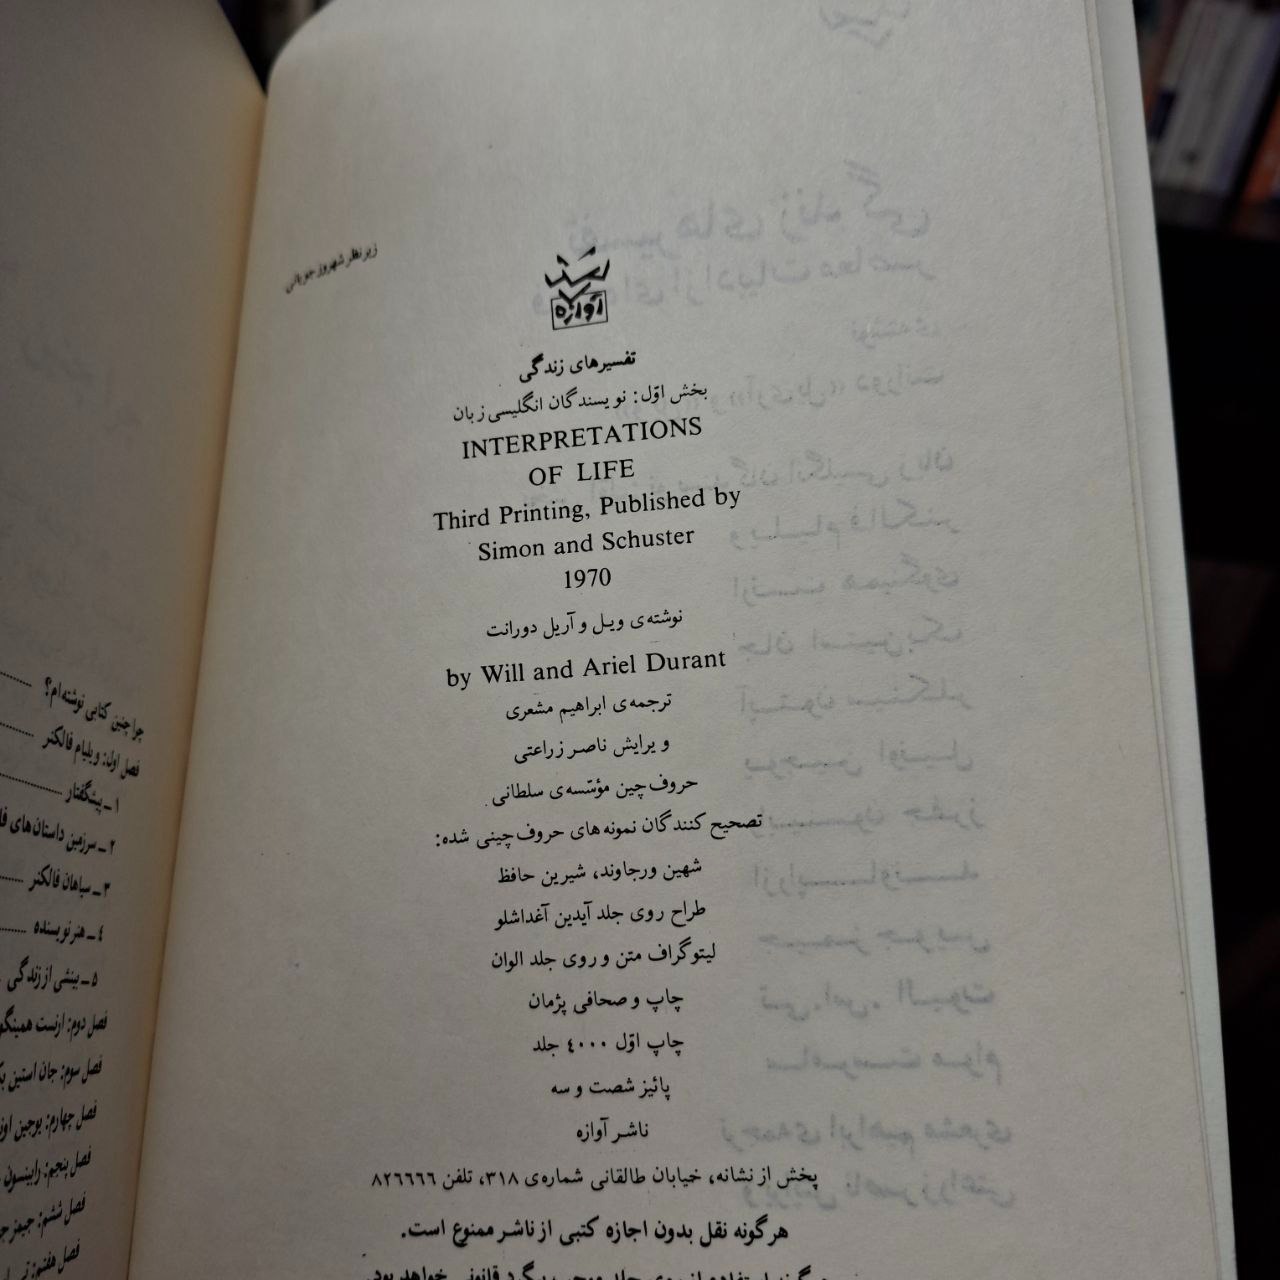 زیر نظر شهروز جویانی
آوازه
تفسیرهای زندگی
بخش اوّل: نویسندگان انگلیسی زبان
INTERPRETATIONS
OF LIFE
Third Printing, Published by
Simon and Schuster
1970
نوشته‌ی ویل و آریل دورانت
by Will and Ariel Durant
ترجمه‌ی ابراهیم مشعری
ویرایش ناصر زراعتی
حروف‌چین مؤسّسه‌ی سلطانی
تصحیح کنندگان نمونه‌های حروف‌چینی شده:
شهین ورجاوند، شیرین حافظ
طراح روی جلد آیدین آغداشلو
لیتوگراف متن و روی جلد الوان
چاپ و صحافی پژمان
چاپ اوّل ۴۰۰۰ جلد
پائیز شصت و سه
ناشر آوازه
پخش از نشانه، خیابان طالقانی شماره‌ی ۳۱۸، تلفن ۸۲۶۶۶۶
هرگونه نقل بدون اجازه کتبی از ناشر ممنوع است.
چرا چنین کتابی نوشته‌ام؟
فصل اول: ویلیام فالکنر
۱ــ پیشگفتار
۲ــ سرزمین داستان‌های
۳ــ سیاهان فالکنر
۴ــ هنر نویسنده
۵ــ بینشی از زندگی
فصل دوم: ارنست
فصل سوم: جان استین
فصل چهارم: یوجین
فصل پنجم: رابینسون
فصل ششم: جیمز
فصل هفتم: